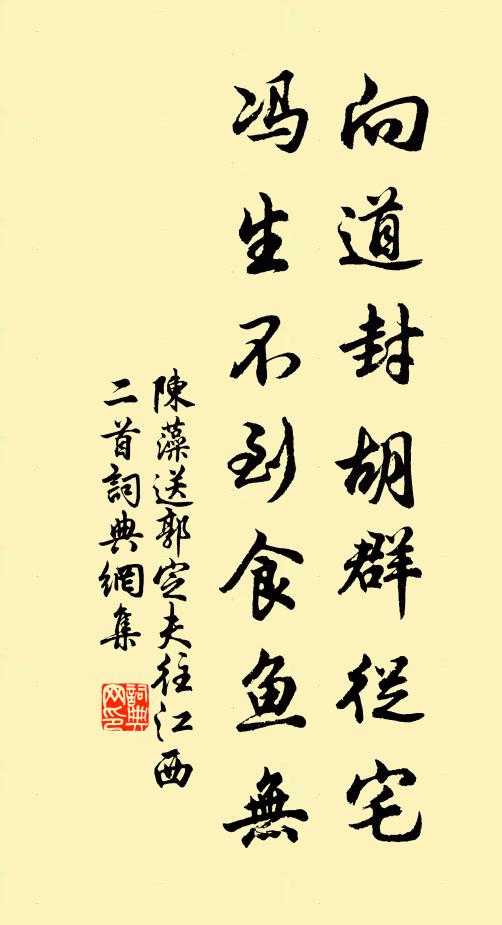 向道封胡群從宅
冯生不到食鱼無
陳藻送郭定夫往江西
二首詞典網集
詞典
网印